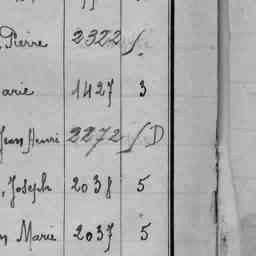 Pierre 2322
arie 1427 3
Jean Henri 2272 D
, Joseph 2038 5
n Marie 2037 5